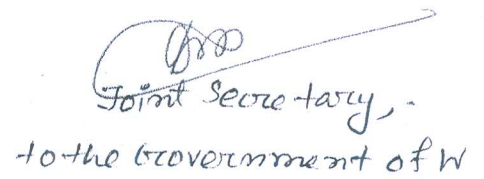 Joint Secretary,
to the Government of W